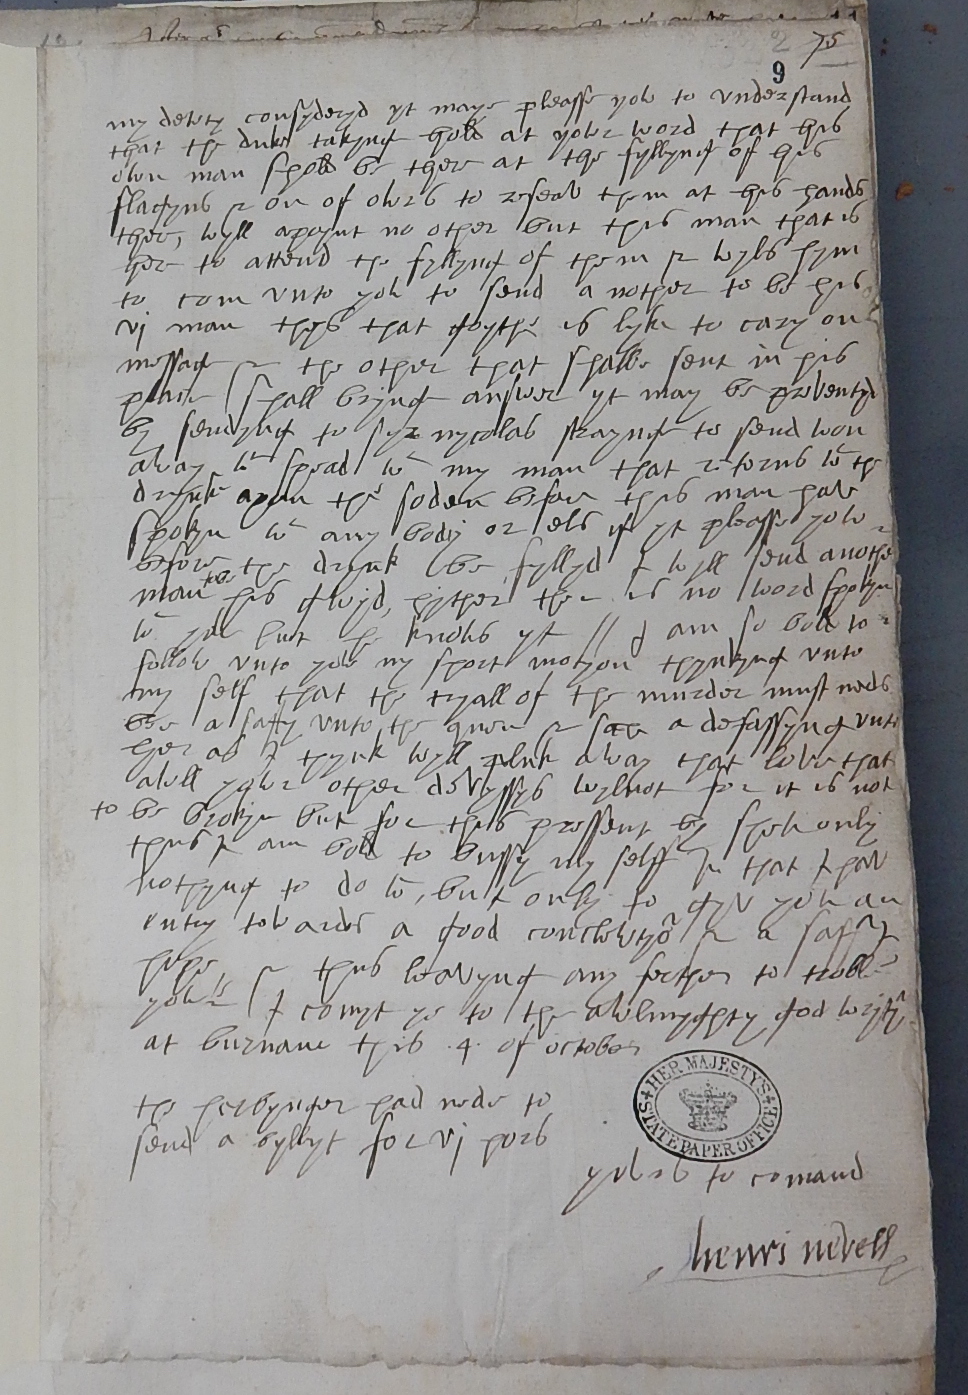 75
9
my dewty consyderyd yt maye pleasse yow to vnderstand
that the duke takyng hold at yowr word that his
own man shold be there at the fyllyng of his
flagyns & on of owrs to reseav them at his hands
ther, wyll apoynt no other but this man that is
her to attend the fyllyng of them & wyls hym
to com vnto yow to send a nother to be his
vj man thys that goythe is lyke to cary on
messag & the other that shalbe sent in his
place shall bryng answer yt may be preventyd
by sendyng to syr nycolas strayng to send won
away wt spead wt my man that retorns wt the
drynke apon the soden before this man have
spokyn wt any body or els if yt pleasse yow
before the drynk be fyllyd I wyll send another
man to be his gwyd hyther ther is no word spokyn
wt yow but he knows yt // I am so bold to
follow vnto yow my short motyon thynkyng vnto
my self that the tryall of the murder must neds
be a safty vnto the quen & a defassyng vnto
her as I thynk wyll pluk away that love that
awll yowr other devyssys wyl not for it is not
to be brokyn but for this pressent by shew only
thus I am bold to bussy my selff in that I hav
nothyng to do wt, but only to gyv yow an
entry towards a good conclewtyon & a saff
hope, & thus leavyng any ferther to trobl
yow I comyt ye to the awlmyghty god wrytyn
at burnam this .4. of october
the herbynger had nede to
send a byllyt for vj hors
HER MAJESTY'S STATE PAPER OFFICE
yowrs to comand
henri nevell